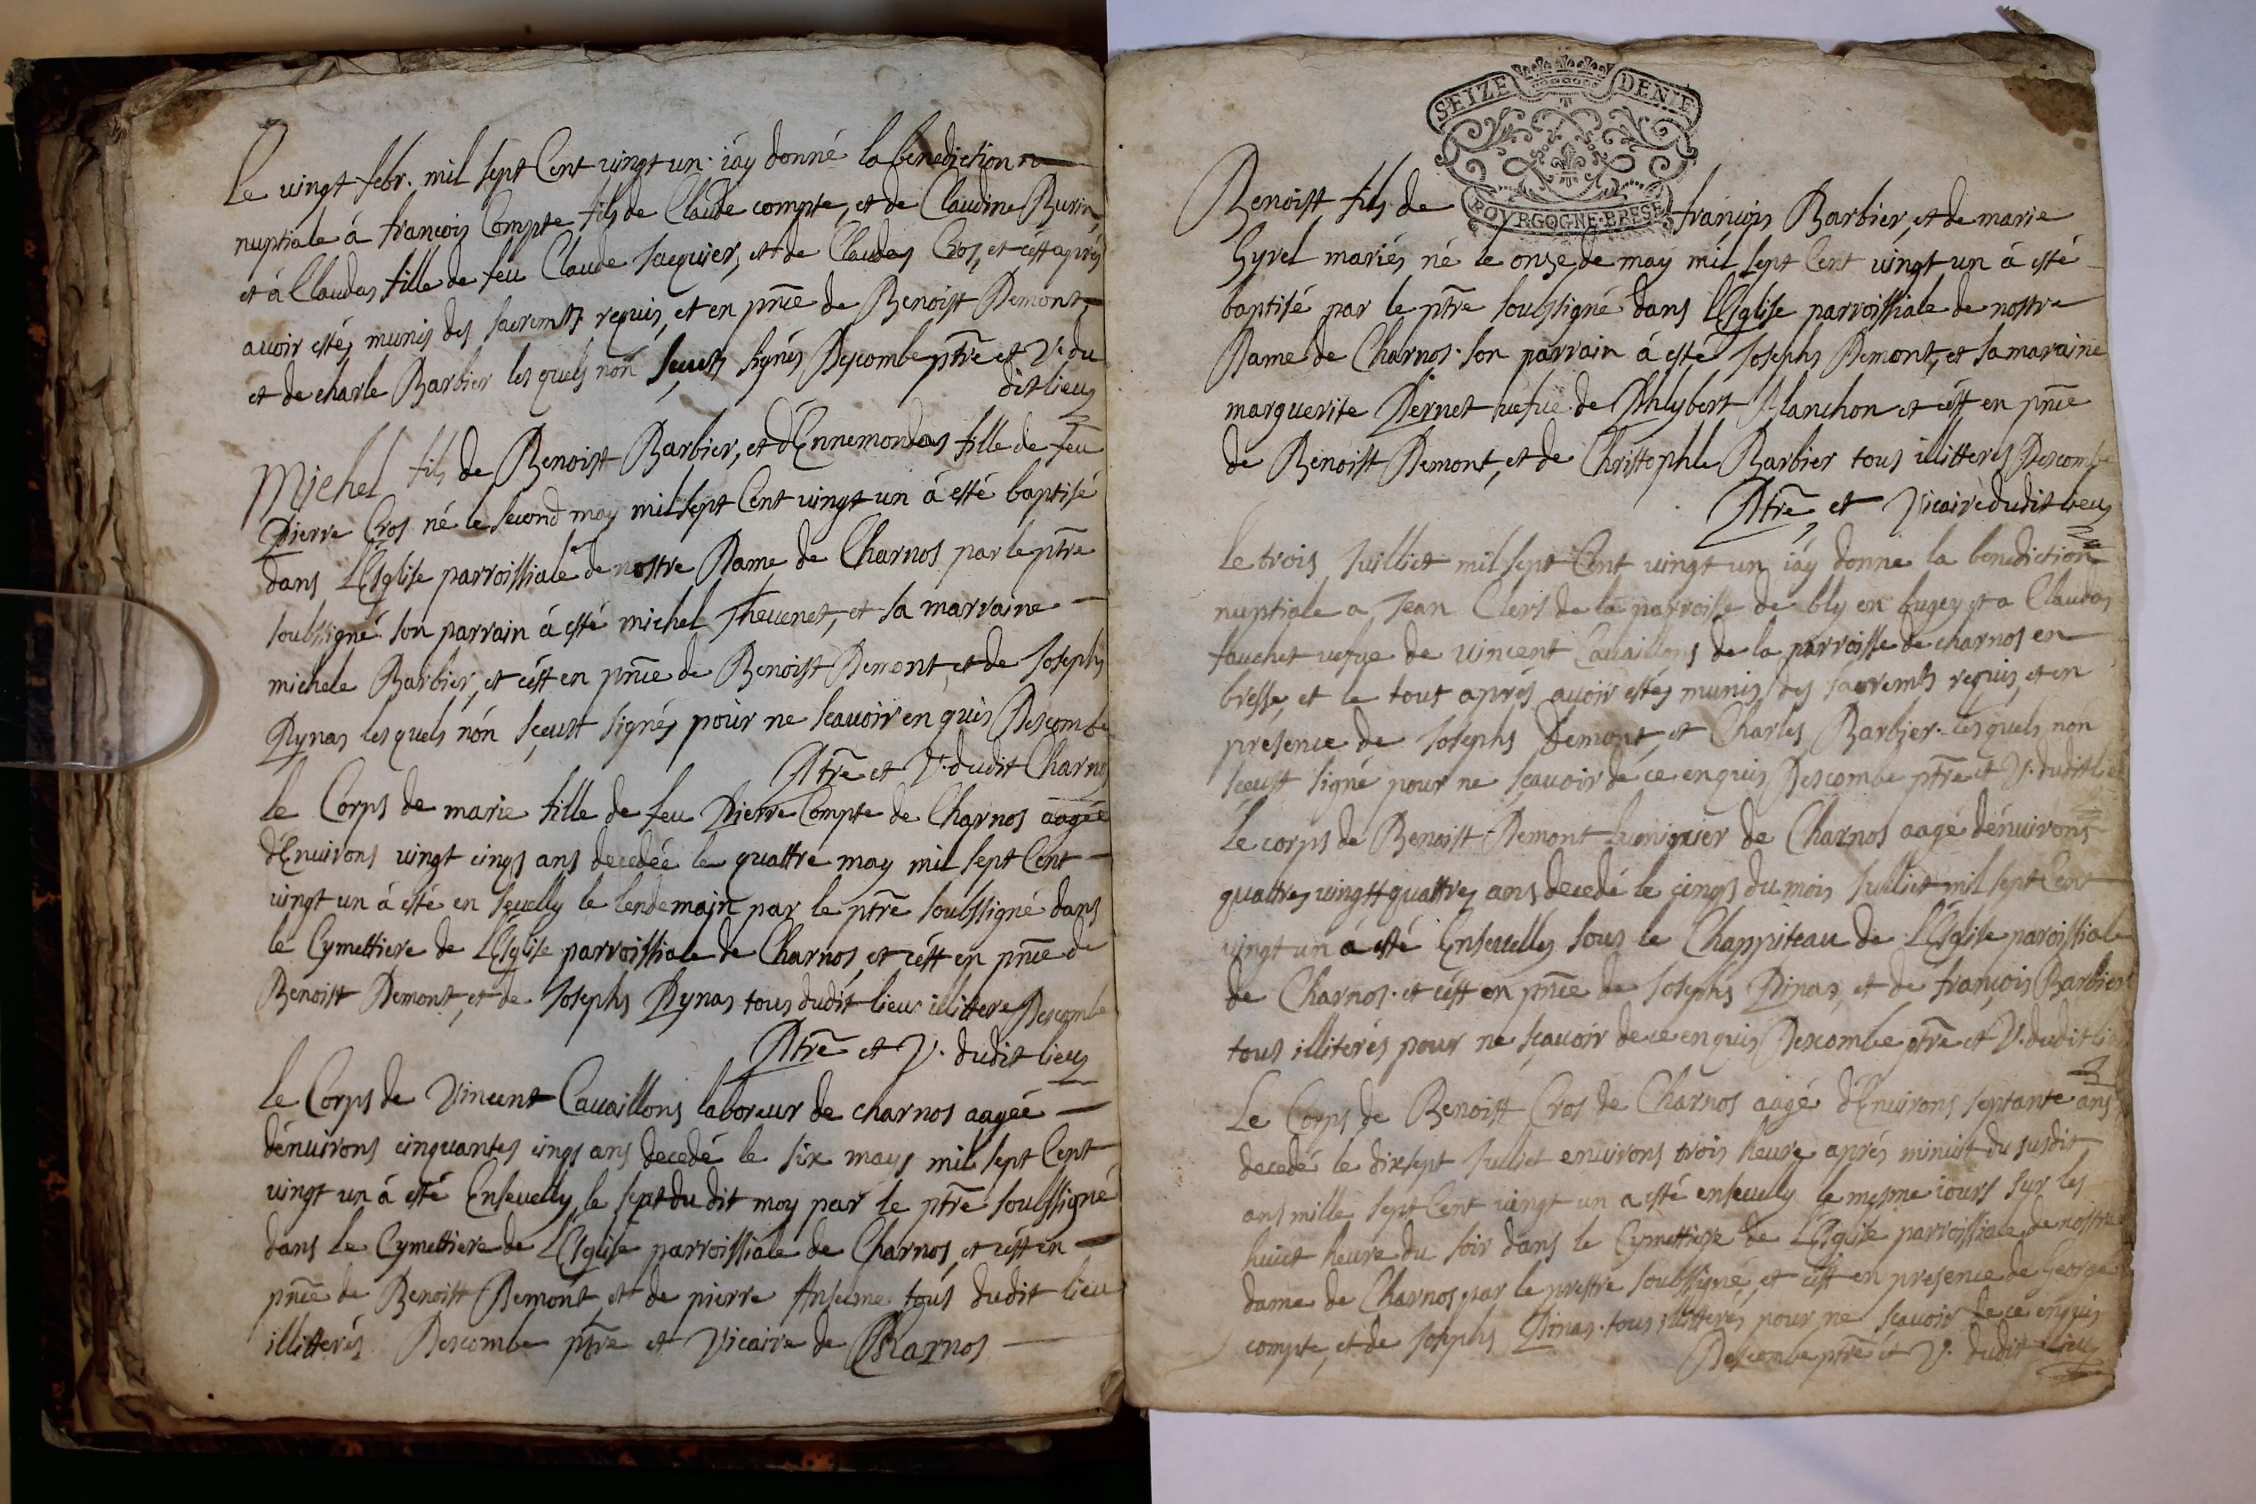 Le vingt febr. mil sept Cent vingt un iay donné la benediction
nuptiale á francois Compte fils de Claude compte, et de Claudine Burin,
et á Claudas fille de feu Claude Jacquier, et de Claudas Cros, et cést aprés
avoir estés munis des sacremts requis, et en pnce de Benoist Demont,
et de charle Barbier les quels non sceust signés Descombe ptre et V. du
dit lieus
Michel fils de Benoist Barbier, et d'Ennemondas fille de feu
Pierre Cros né le second may mil sept Cent vingt un á esté baptisé
dans L'Esglise parroissiale de nostre Dame de Charnos par le ptre
soubssigné son parrain á esté michel Thevenet, et sa marraine
michele Barbier, et cést en pnce de Benoist Demont, et de Josephs
Pynas les quels nón sceust signés poúr ne scavoir en quis Descombe
Ptre et V. dudit Charnos
le Corps de marie fille de feu Pierre Compte de Charnos aagée
d'Environs vingt cinqs ans decedée le quattre may mil sept Cent
vingt un á esté en sevelly le lendemain par le ptre soubssigné dans
le Cymettiere de L'Esglise parroissiale de Charnos, et cést en pnce de
Benoist Demont, et de Josephs Pynas tous dudit lieu illittere Descombe
Ptre et V. dudit lieus
le Corps de Vincent Cavaillons laboreur de charnos aageé
dénvirons cinquantes cinqs ans decedé le six mays mil sept Cent
vingt un á esté Ensevelly le sept du dit moy par le ptre soubssigné
dans Le Cymettiere de L'Esglise parroissiale de Charnos, et cést en
pnce de Benoist Demont, et de pierre Anselme tous dudit lieu
illitterés Descombe ptre et Vicaire de Charnos
SEIZE DENIE
BOURGOGNE-BRESE
Benoist fils de françois Barbier, et de marie
Gyrel mariés né le onze de may mil sept Cent vingt un á esté
baptisé par le ptre soubssigné dans L'Esglise parroissiale de nostre
Dame de Charnos. son parrain á esté Josephs Demont, et sa maraine
marguerite Pernet vefue de Phlybert Planchon et cést en pnce
de Benoist Demont, et de Christophle Barbier tous illitteres Descombe
Ptre, et Vicaire dudit lieus
le trois Juilliet mil sept Cent vingt un iáy donne la benediction
nuptiale a Jean Clers de la parroisse de bly en bugey et a Claudas
fauchet vefue de vincent Cavaillons de la parroisse de charnos en
bresse, et le tout aprés avoir estés munis des sacremts requis, et en
presence de Josephs Demont, et Charles Barbier. les quels non
sceust signé pour ne scavoir de ce en quis Descombe ptre et V. dudit lieu
Le corps de Benoist Demont de Charnos aagé dénvirons
quattres vingtt quattres ans decedé le cinqs du mois Julliet mil sept Cent
vingt un á esté Ensevellys sous le Chappiteau de L'Esglise paroissiale
de Charnos. et cést en pnce de Josephs Pinas, et de françois Barbier
tous illiterés pour ne scavoir de ce en quis Descombe ptre et V. dudit lieu
Le Corps de Benoist Cros de Charnos aagé d'Environs septante ans,
decedé le dixsept Julliet environs trois heure aprés minuit du susdit
ans mille sept Cent vingt un a esté ensevelly le mesme iours sur les
huict heure du soir dans le Cymettiere de L'Esglise parroissiale de nostre
dame de Charnos par le prestre soubssigné, et cést en presence de George
compte, et de Josephs Pinas. tous illitterés pour ne scavoir de ce enquis
Descombe ptre et V. dudit lieus